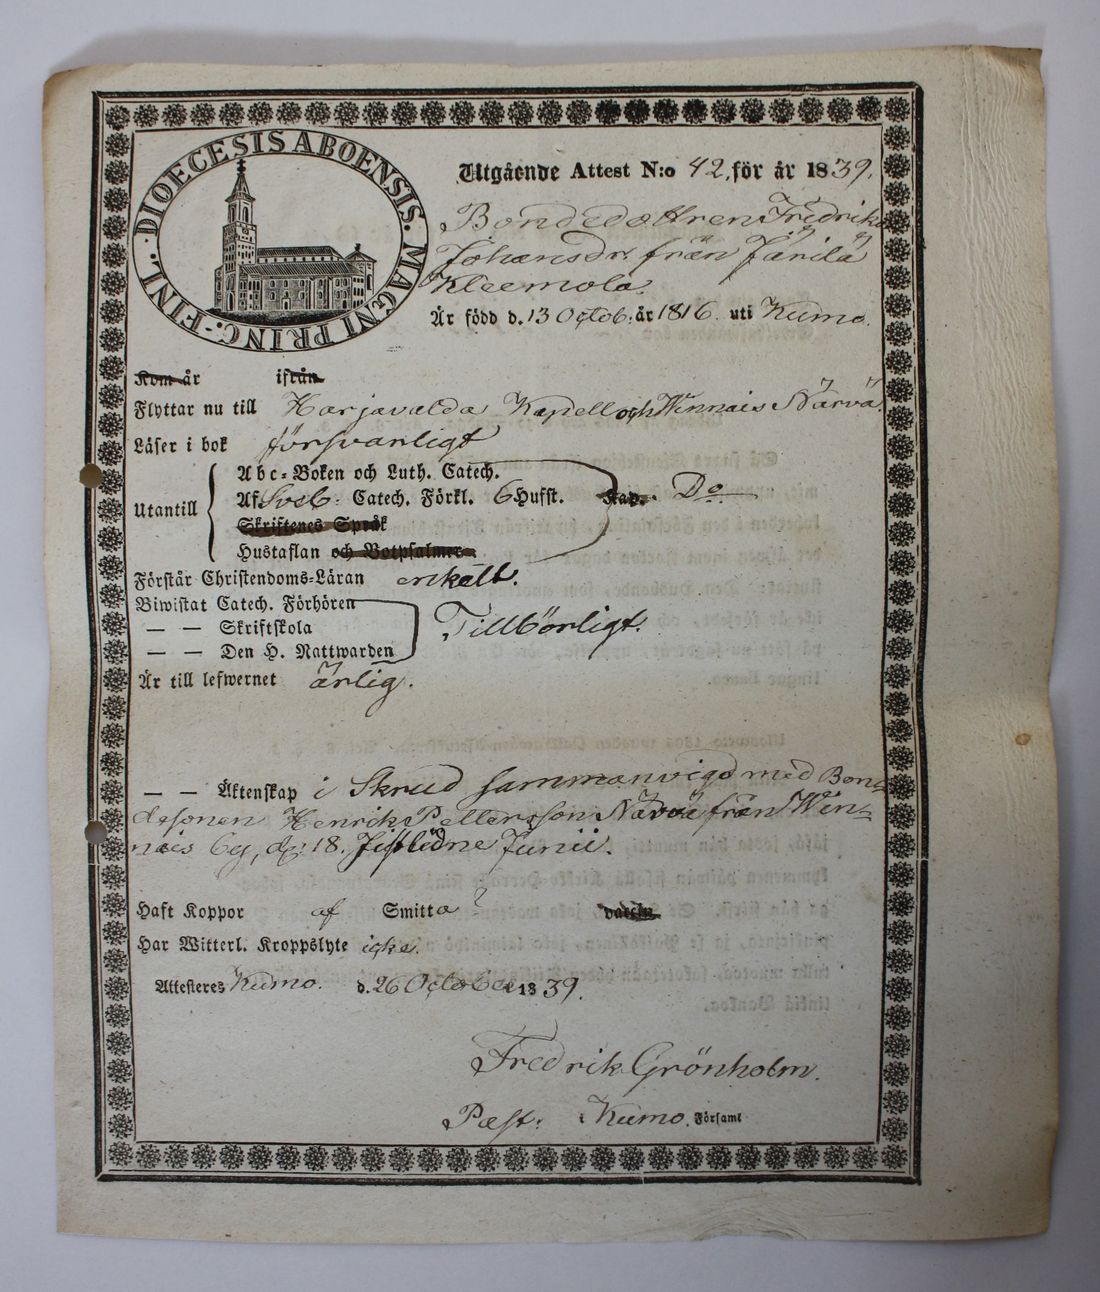 DIOECESIS ABOENSIS. MAGNI PRINC. FINL.
Utgående Attest N:o 42, för år 1839.
Bondedottren Fredrika
Johansdr. från Järilä
Kleemola.
Är född d. 13 Octob: år 1816. uti Kumo.
Kom år ifrån
Flyttar nu till Harjavalda Kapell och Winnais Närvä.
Läser i bok försvarligt
Utantill
Abc-Boken och Luth. Catech.
Af Sveb. Catech. Förkl. 6 Hufst. Kap. Do
Skriftenes Språk
Hustaflan och Botpsalmer
Förstår Christendoms-Läran enkelt.
Biwistat Catech. Förhören
— — Skriftskola Tillbörligt.
— — Den H. Nattwarden
Är till lefwernet ärlig.
— — Äktenskap i Skrud sammanvigd med Bon-
desonen Henrik Pettersson Närvä från Win-
nais by, d. 18. Junii.
Haft Koppor af Smitta
Har Witterl. Kroppslyte icke.
Attesteres Kumo. d. 26 October 1839.
Fredrik Grönholm.
Past: i Kumo. Församl